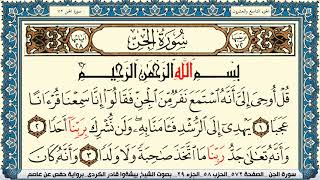 الجزء التاسع والعشرون
سورة الجن ٧٢
سُورَةُ الجِنِّ
بِسْمِ اللَّهِ الرَّحْمَٰنِ الرَّحِيمِ
قُلْ أُوحِىَ إِلَىَّ أَنَّهُ ٱسْتَمَعَ نَفَرٌ مِّنَ ٱلْجِنِّ فَقَالُوٓا۟ إِنَّا سَمِعْنَا قُرْءَانًا
عَجَبًا ١ يَهْدِىٓ إِلَى ٱلرُّشْدِ فَـَٔامَنَّا بِهِۦ وَلَن نُّشْرِكَ بِرَبِّنَآ أَحَدًا
٢ وَأَنَّهُۥ تَعَٰلَىٰ جَدُّ رَبِّنَا مَا ٱتَّخَذَ صَٰحِبَةً وَلَا وَلَدًا ٣ وَأَنَّهُۥ كَانَ
سورة الجن - الصفحة ٥٧٢ الحزب ٥٨ الجزء ٢٩ بصوت الشيخ بيشةوا قادر الكردي. برواية حفص عن عاصم